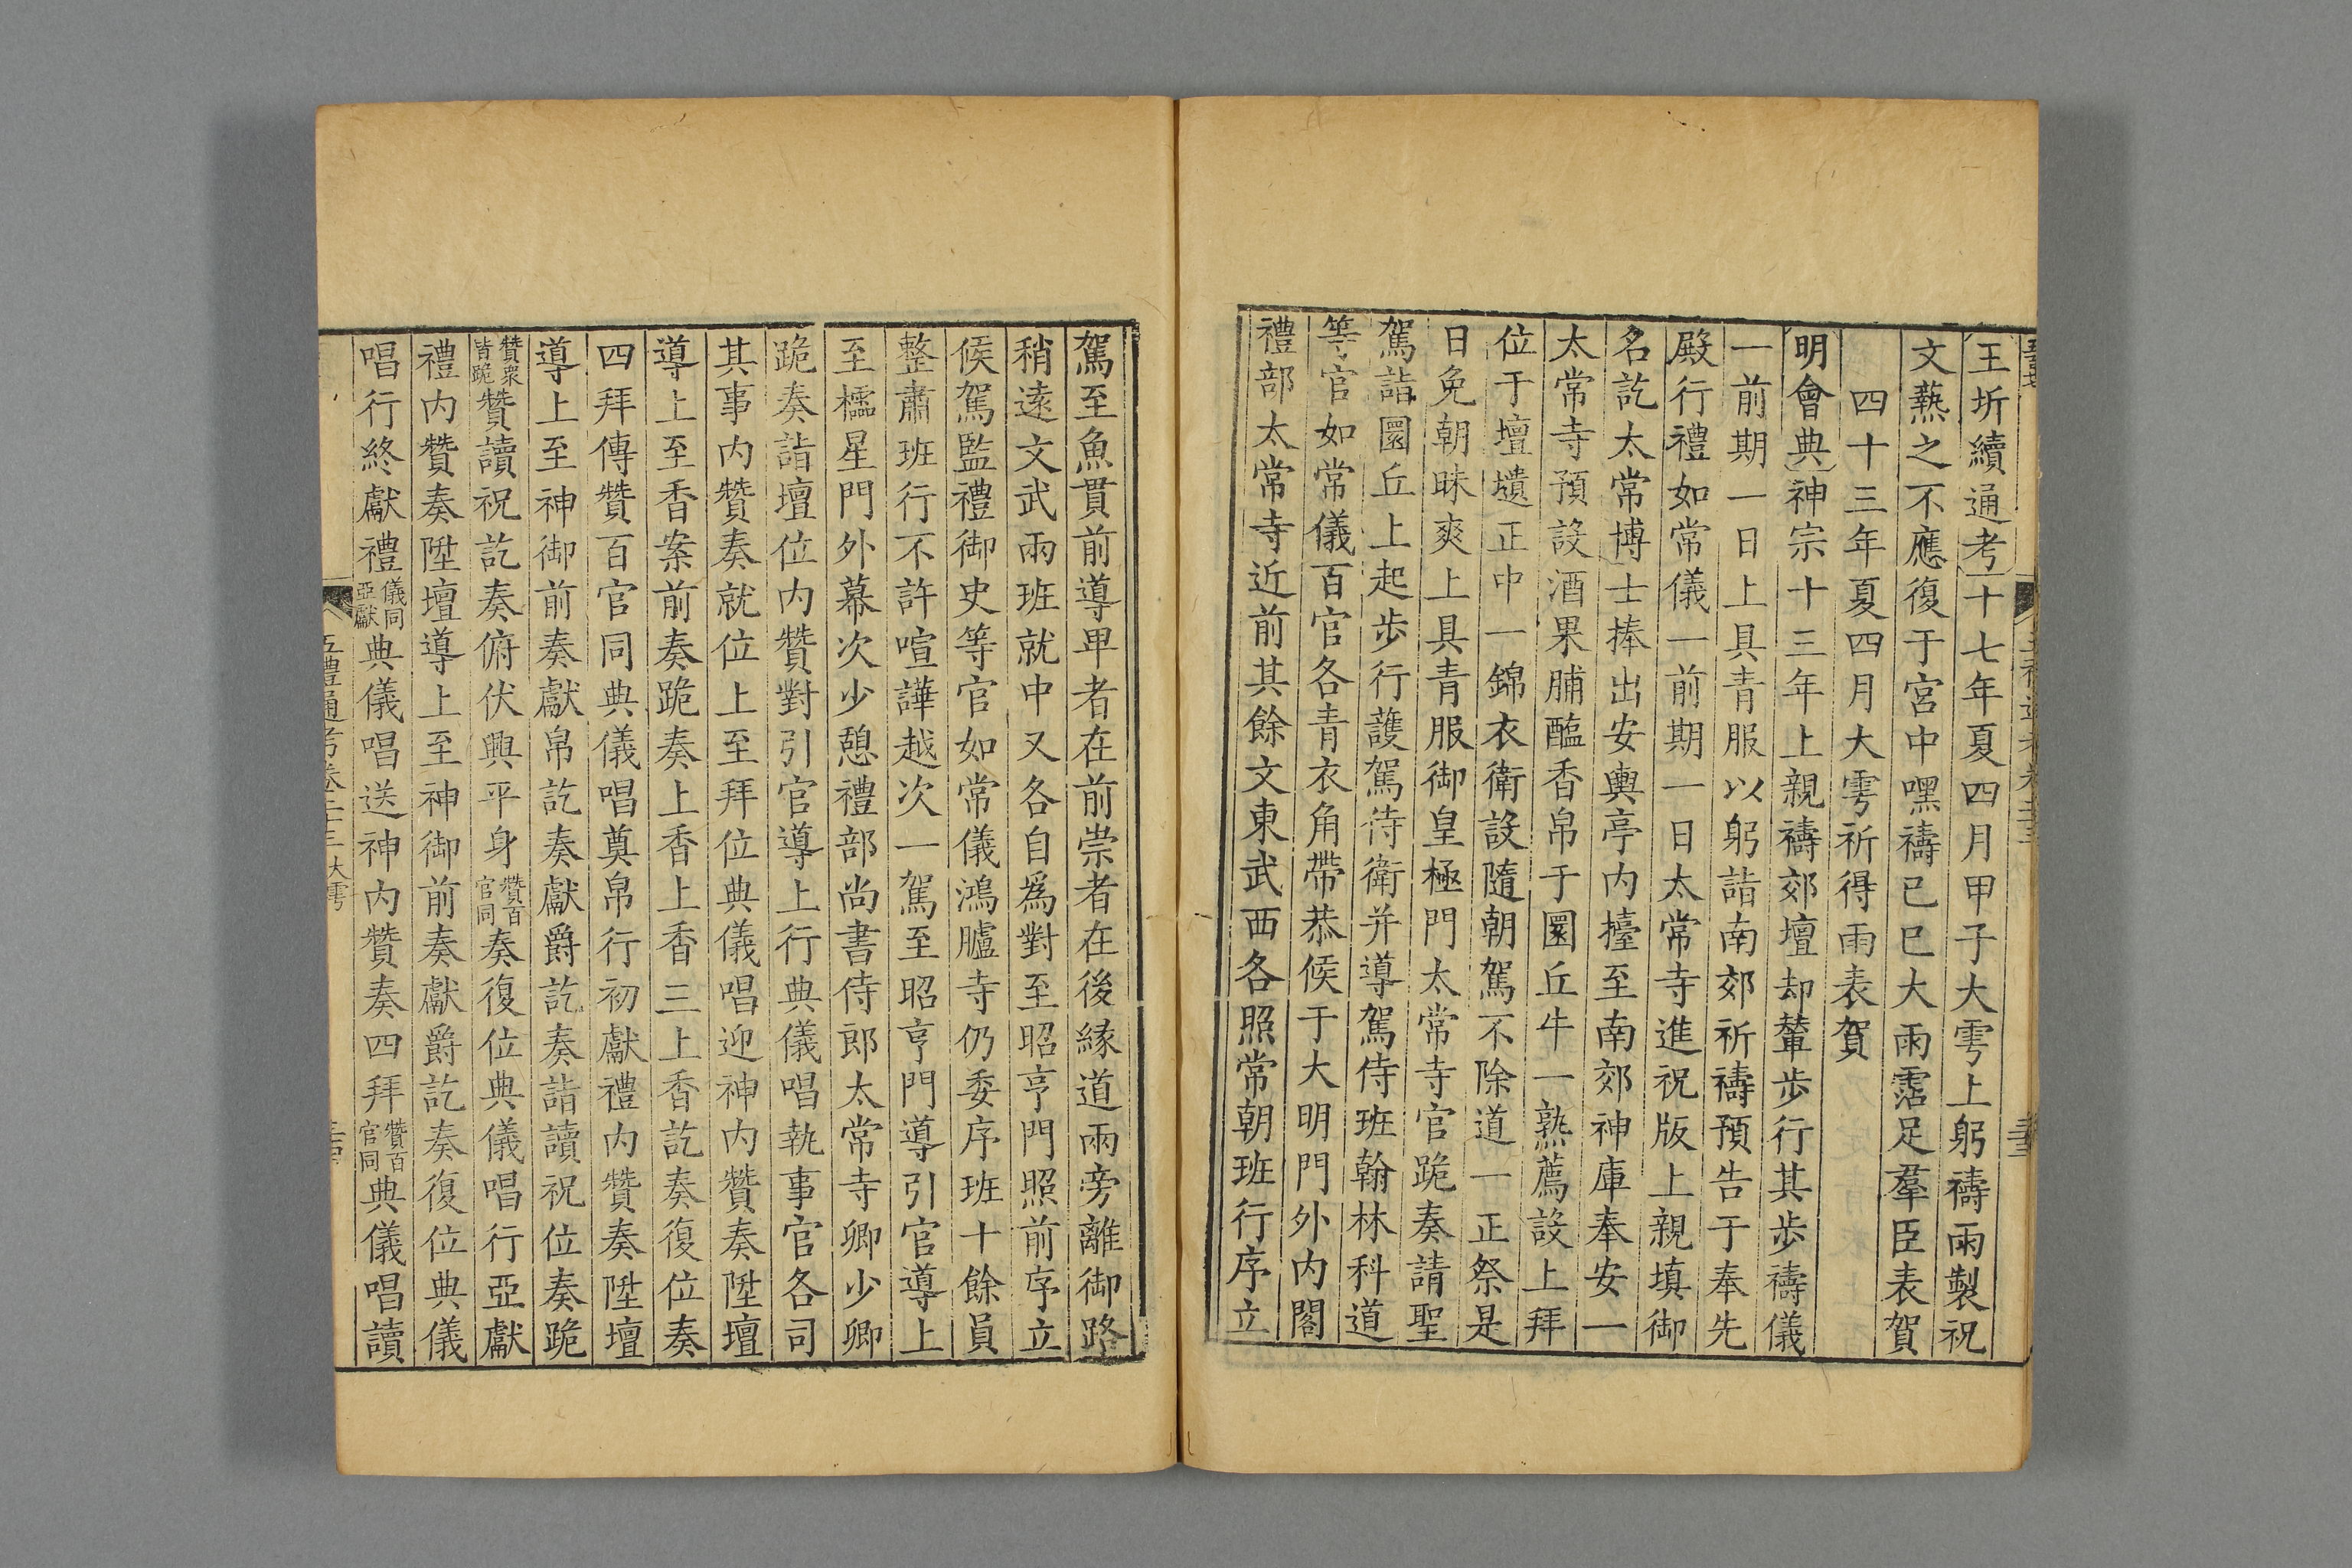 王圻續通考十七年夏四月甲子大雩上躬禱雨製祝
文爇之不應復于宮中嘿禱已巳大雨霑足羣臣表賀
四十三年夏四月大雩祈得雨表賀
明會典神宗十三年上親禱郊壇却輦步行其步禱儀
一前期一日上具青服以躬詣南郊祈禱預告于奉先
殿行禮如常儀一前期一日太常寺進祝版上親填御
名訖太常博士捧出安輿亭内擡至南郊神庫奉安一
太常寺預設酒果脯醢香帛于圜丘牛一熟薦設上拜
位于壇壝正中一錦衣衛設隨朝駕不除道一正祭是
日免朝昧爽上具青服御皇極門太常寺官跪奏請聖
駕詣圜丘上起步行護駕侍衛并導駕侍班翰林科道
等官如常儀百官各青衣角帶恭候于大明門外内閣
禮部太常寺近前其餘文東武西各照常朝班行序立
駕至魚貫前導卑者在前崇者在後緣道兩旁離御路
稍遠文武兩班就中又各自爲對至昭亨門照前序立
候駕監禮御史等官如常儀鴻臚寺仍委序班十餘員
整肅班行不許喧譁越次一駕至昭亨門導引官導上
至櫺星門外幕次少憩禮部尚書侍郎太常寺卿少卿
跪奏詣壇位内贊對引官導上行典儀唱執事官各司
其事内贊奏就位上至拜位典儀唱迎神内贊奏陞壇
導上至香案前奏跪奏上香上香三上香訖奏復位奏
四拜傳贊百官同典儀唱奠帛行初獻禮内贊奏陞壇
導上至神御前奏獻帛訖奏獻爵訖奏詣讀祝位奏跪
贊衆皆跪贊讀祝訖奏俯伏興平身贊百官同奏復位典儀唱行亞獻
禮内贊奏陞壇導上至神御前奏獻爵訖奏復位典儀
唱行終獻禮儀同亞獻典儀唱送神内贊奏四拜贊百官同典儀唱讀
五禮通考卷二十三大雩